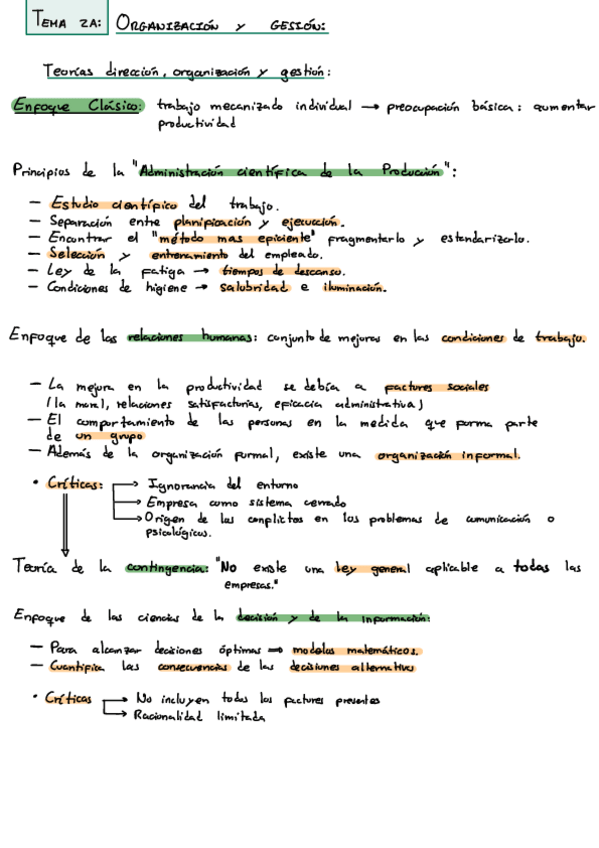 TEMA 2A: ORGANIZACIÓN y GESIÓN:
Teorías dirección, organización y gestión:
Enfoque Clásico: trabajo mecanizado individual → preocupación básica: aumentar
productividad
Principios de la "Administración científica de la Producción":
— Estudio científico del trabajo.
— Separación entre planificación y ejecución.
— Encontrar el "método mas eficiente" fragmentarlo y estandarizarlo.
— Selección y entrenamiento del empleado.
— Ley de la fatiga → tiempos de descanso.
— Condiciones de higiene → salubridad e iluminación.
Enfoque de las relaciones humanas: conjunto de mejoras en las condiciones de trabajo.
— La mejora en la productividad se debía a factores sociales
(la moral, relaciones satisfactorias, eficacia administrativa)
— El comportamiento de las personas en la medida que forma parte
de un grupo
— Además de la organización formal, existe una organización informal.
• Críticas: → Ignorancia del entorno
→ Empresa como sistema cerrado
→ Origen de los conflictos en los problemas de comunicación o
psicológicos.
Teoría de la contingencia: "No existe una ley general aplicable a todas las
empresas."
Enfoque de las ciencias de la decisión y de la información:
— Para alcanzar decisiones óptimas → modelos matemáticos.
— Cuantifica las consecuencias de las decisiones alternativas
• Críticas → No incluyen todos los factores presentes
→ Racionalidad limitada